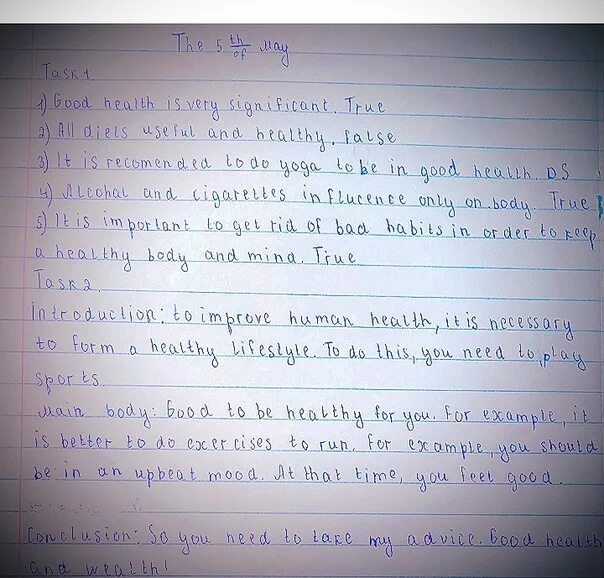 The 5 th of May
Task 1.
1) Good health is very significant. True
2) All diets useful and healthy. False
3) It is recomended to do yoga to be in good health. DS
4) Alcohal and cigarettes influcence only on body. True
5) It is important to get rid of bad habits in order to keep
a healthy body and mind. True
Task 2.
Introduction: to improve human health, it is necessary
to form a healthy lifestyle. To do this, you need to play
sports.
Main body: Good to be healthy for you. For example, it
is better to do exercises to run. For example, you should
be in an upbeat mood. At that time, you feel good.
Conclusion: So you need to take my advice. Good health
and wealth!